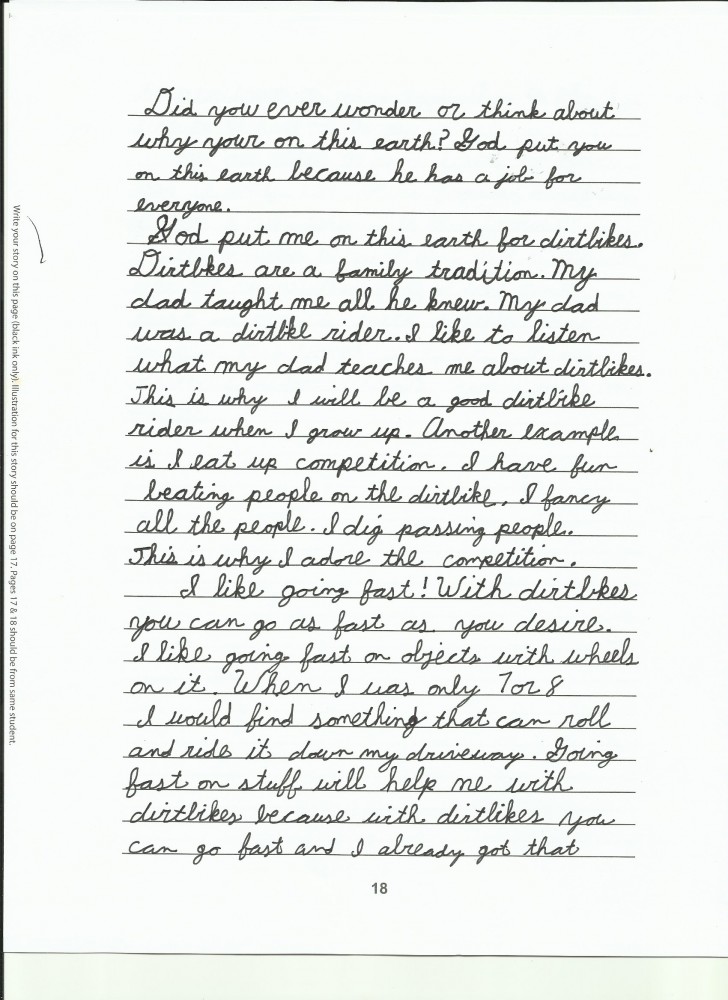 Did you ever wonder or think about
why your on this earth? God put you
on this earth because he has a job for
everyone.
God put me on this earth for dirtbikes.
Dirtbkes are a family tradition. My
dad taught me all he knew. My dad
was a dirtbke rider. I like to listen
what my dad teaches me about dirtbikes.
This is why I will be a good dirtbike
rider when I grow up. Another example
is I eat up competition. I have fun
beating people on the dirtbike. I fancy
all the people. I dig passing people.
This is why I adore the competition.
I like going fast! With dirtbkes
you can go as fast as you desire.
I like going fast on objects with wheels
on it. When I was only 7 or 8
I would find something that can roll
and ride it down my driveway. Going
fast on stuff will help me with
dirtbikes because with dirtbikes you
can go fast and I already got that
18
Write your story on this page (black ink only). Illustration for this story should be on page 17. Pages 17 & 18 should be from same student.